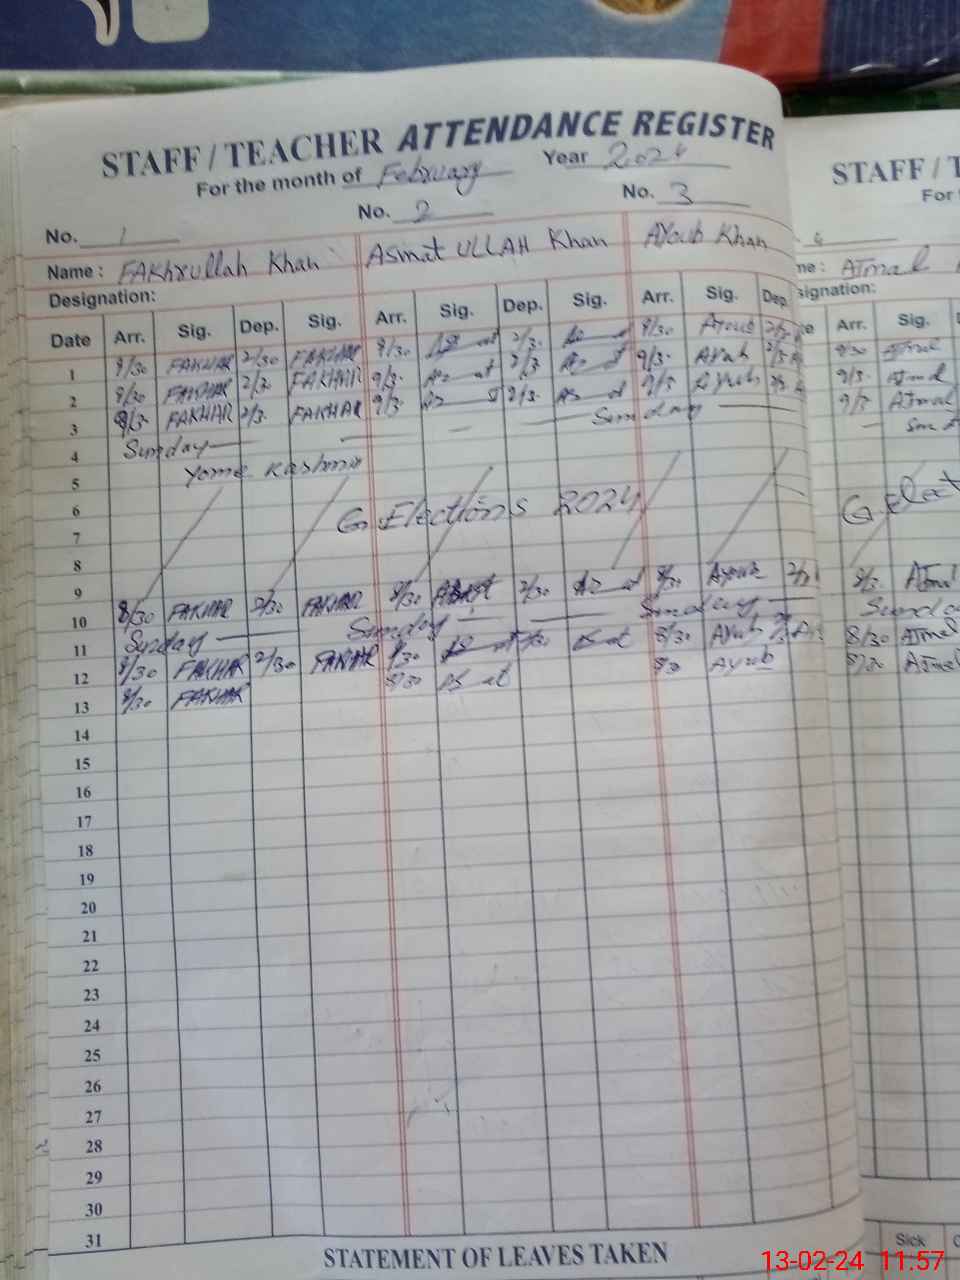 STAFF / TEACHER ATTENDANCE REGISTER
For the month of February Year 2024
No. 1 No. 2 No. 3
Name : FAKhrullah Khan Asmat ULLAH Khan AYoub Khan
Designation:
Date Arr. Sig. Dep. Sig. Arr. Sig. Dep. Sig. Arr. Sig. Dep.
1 9/30 FAKHAR 2/30 FAKHAR 9/30 9/30 Ayoub
2 9/30 FAKHAR 2/3 FAKHAR 9/3 2/3 9/3 Ayub
3 9/3 FAKHAR 2/3 FAKHAR 9/3 2/3 Ayub
4 Sunday Sunday
5 Yome Kashmir
6
7 G. Elections 2024
8
9
10 8/30 FAKHAR 2/30 FAKHAR 8/30 2/30 8/30 Ayoub
11 Sunday Sunday Sunday
12 8/30 FAKHAR 2/30 FAKHAR 8/30 8/30 Ayub
13 8/30 FAKHAR 8/30 8/30 Ayub
14
15
16
17
18
19
20
21
22
23
24
25
26
27
28
29
30
31
STATEMENT OF LEAVES TAKEN
STAFF / T
For
4
me : AJmal
signation:
Arr. Sig.
8/30 AJmal
9/3 AJmal
9/3 AJmal
G. Elect
8/3 AJmal
Sunda
8/30 AJmel
8/30 AJmel
Sick
13-02-24 11:57